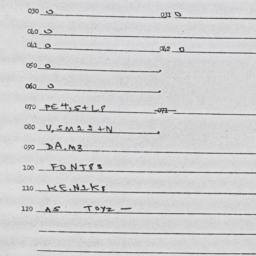 030 0 031 0
040 0
041 0 042 0
050 0
060 0
070 PE4,5+LP 071
080 V,SM23+N
090 DA.M3
100 FONT83
110 KE.N1K8
120 AS TOYZ —